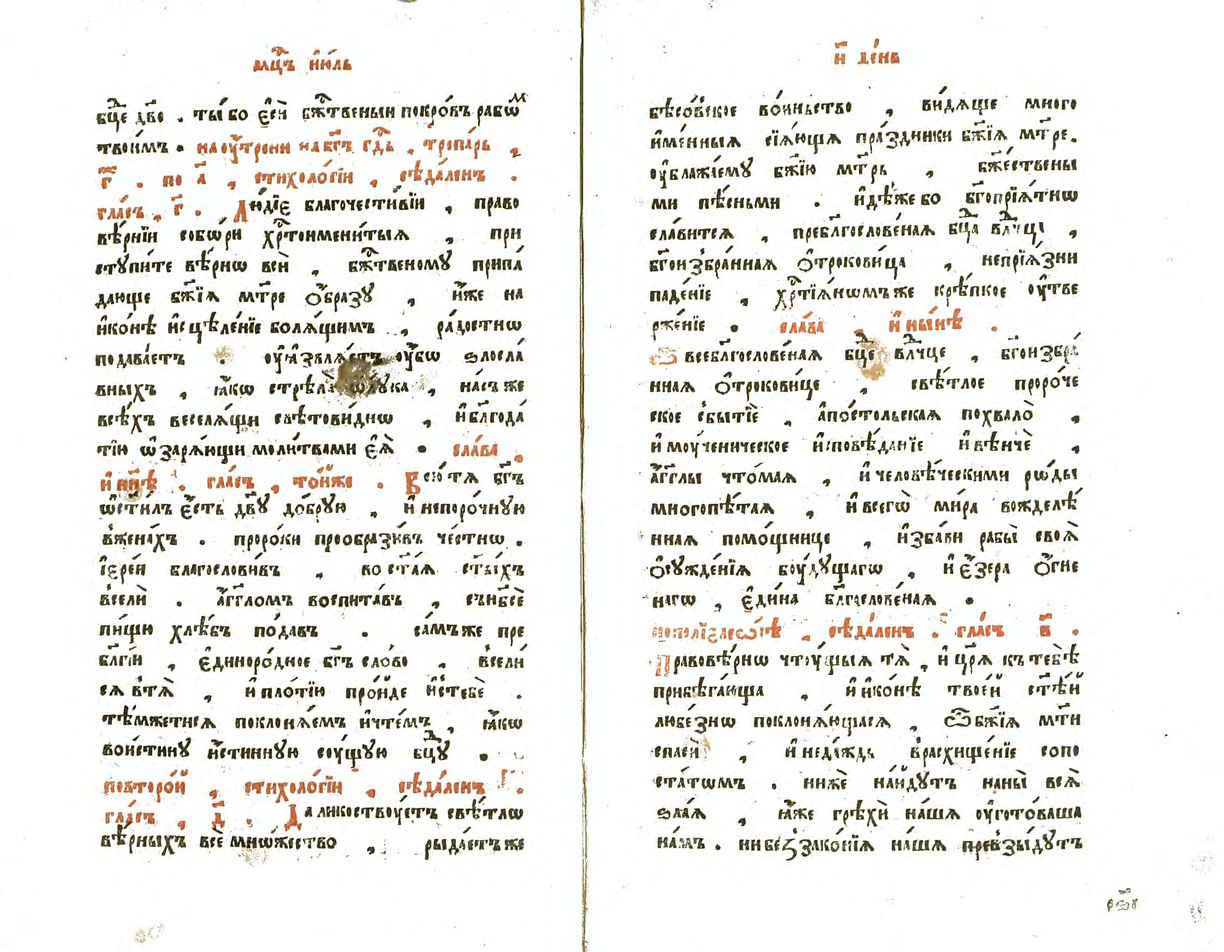 мⷭ҇цъ і҆ю́ль
бц҃е дв҃о . ты́ бо є҆сѝ бж҃твеныи покро́въ рабѡⷨ
твои́мъ . на ѹ҆́трени на бг҃ъ гдⷭ҇ь , тропа́рь ,
г҃ . по а҃ , стихоло́гїи , сѣда́ленъ .
гла́съ , г҃ . Лю́дїє благочести́вїи , право
вѣ́рнїи собѡ́ри хрⷭ҇тоимени́тыѧ , при
ступи́те вѣ́рнѡ всѝ , бж҃твеному припа́
дающе бж҃їѧ мт҃ре ѻ҆́бразꙋ , и҆́же на
и҆ко́нѣ и҆сцѣле́нїе болѧ́щимъ , ра́достнѡ
подава́етъ . ѹ҆ѧзвлѧ́етъ ѹ҆́бѡ ѕлосла́
вныхъ , ꙗ҆́кѡ стрѣла̀ ѿ лꙋ́ка , на́съ же
всѣ́хъ веселѧ́щи свѣтови́днѡ , и҆ блгода́
тїю ѡ҆зарѧ́ющи моли́твами є҆ѧ̀ . сла́ва .
и҆ нн҃ѣ . гла́съ , то́иже . Всю̀ тѧ бг҃ъ
ѡ҆чи́стилъ є҆́сть дв҃ꙋ до́брꙋю , и҆ непоро́чнꙋю
в̾жена́хъ . проро́ки прообрази́въ че́стнѡ .
і҆єре́и благослови́въ , во ст҃а́ѧ ст҃ы́хъ
вселѝ . а҆́гг҃ломъ воспита́въ , с̾нб҃сѐ
пи́щю хлѣ́бъ по́давъ . са́мъ же пре
блг҃і́и , є҆диноро́дное бг҃ъ сло́во , всели́
сѧ в̾тѧ̀ , и҆ пло́тїю про́йде и҆стебѐ .
тѣ́мжетисѧ поклонѧ́емъ и҆чте́мъ , ꙗ҆́кѡ
вои́стинꙋ и҆́стиннꙋю сꙋ́щꙋю бцⷣꙋ .
повторо́й , стихоло́гїи , сѣда́ленъ .
гла́съ , д҃ . Да ликоствꙋ́етъ свѣ́тлѡ
вѣ́рныхъ всѐ мнѡ́жество , рыда́етъ же
и҃ де́нь
бѣсо́вское во́иньство , ви́дѧще много
и҆ме́нныѧ сїѧ́ющѧ пра́здники бж҃їѧ мт҃ре .
ѹ҆блажа́емꙋ бж҃їю мт҃рь , бж҃ествены
ми пѣ́сньми . и҆дѣ́же бо бг҃опрїѧ́тнѡ
сла́витсѧ , преблг҃ослове́наѧ бцⷣа влⷣчці ,
бг҃ои҆збра́ннаѧ ѻ҆трокови́ца , непрїѧ́зни
паде́нїе , хрⷭ҇тїѧ́нѡмъ же крѣ́пкое ѹ҆тве
рже́нїе . сла́ва , и҆ ны́нѣ .
Ѽ всеблг҃ослове́наѧ бцⷣе влⷣчце , бг҃ои҆збра́
ннаѧ ѻ҆трокови́це , свѣ́тлое проро́че
ское сбытїѐ , а҆по́стольскаѧ похвало̀ ,
и҆ мꙋченическое и҆сповѣ́данїе и҆ вѣнчѐ ,
а҆́гг҃лы что́маѧ , и҆ человѣ́ческими рѡ́ды
многопѣ́таѧ , и҆ всегѡ̀ ми́ра вожделѣ́
ннаѧ помо́щнице , и҆зба́ви рабы̀ своѧ̀
ѻ҆сꙋжде́нїѧ бꙋ́дꙋщагѡ , и҆ є҆́зера ѻ҆гне
нагѡ , є҆ди́на блг҃ослове́наѧ .
пополїеле́ѡсѣ , сѣда́ленъ . гла́съ в҃ .
Правовѣ́рнѡ чтꙋ́щыѧ тѧ̀ , и҆ црⷭ҇ѧ к̾тебѣ̀
прибѣга́юща , и҆ и҆ко́нѣ твое́й ст҃ѣ́й
любе́знѡ поклонѧ́ющасѧ , ѽ бж҃їѧ мт҃и
спасѝ , и҆ неда́ждь врасхище́нїе сопо
ста́тѡмъ . ниже́ на́йдꙋтъ наны̀ всѧ̀
ѕла́ѧ , ꙗ҆́же грѣхѝ на́шѧ ѹ҆гото́ваша
на́мъ . ни беззако́нїѧ на́шѧ превзы́дꙋтъ